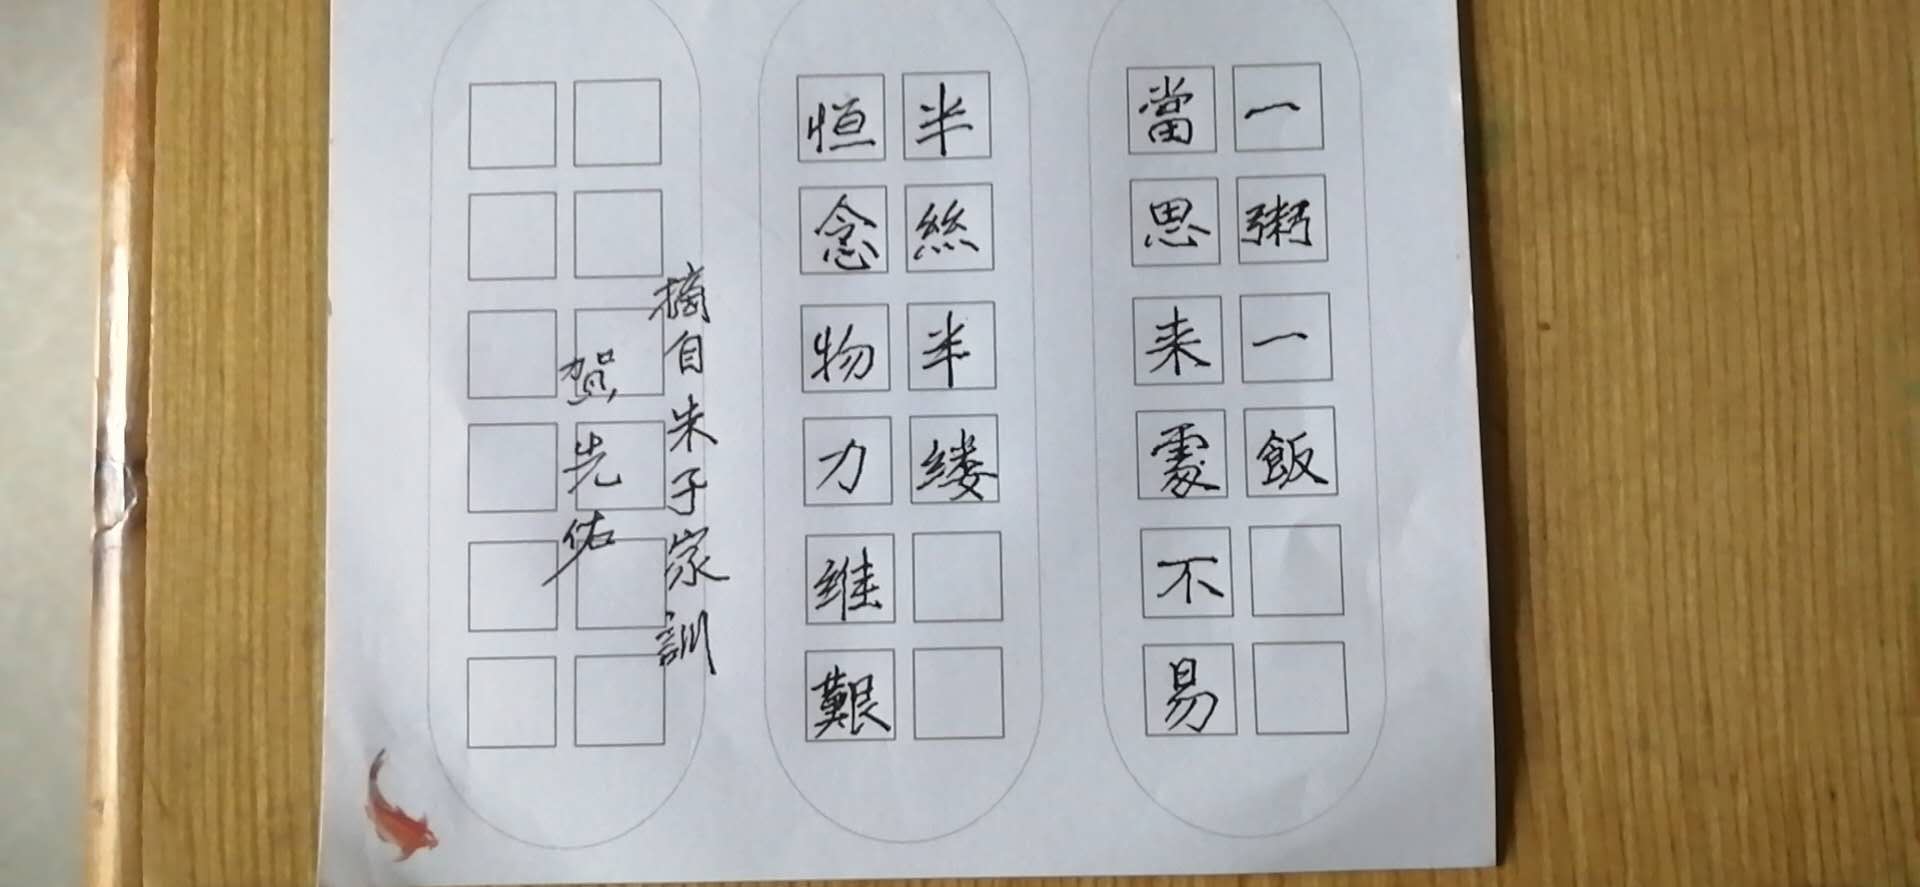 一粥一飯
當思来䖏不易
半絲半缕
恒念物力维艱
摘自朱子家訓
贺先佑